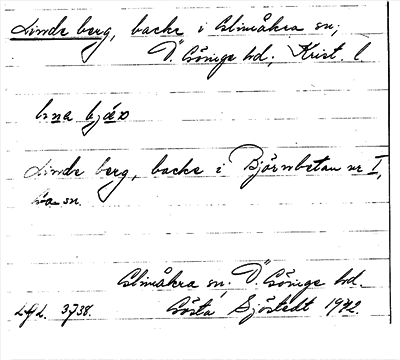 Linde berg, backe i Glimåkra sn;
Ö. Göinge hd; Krist. l.
lina bjär
Linde berg, backe i Björnbetan nr I,
sn.
Glimåkra sn, Ö. Göinge hd.
3738. Gösta Sjöstedt 1942.